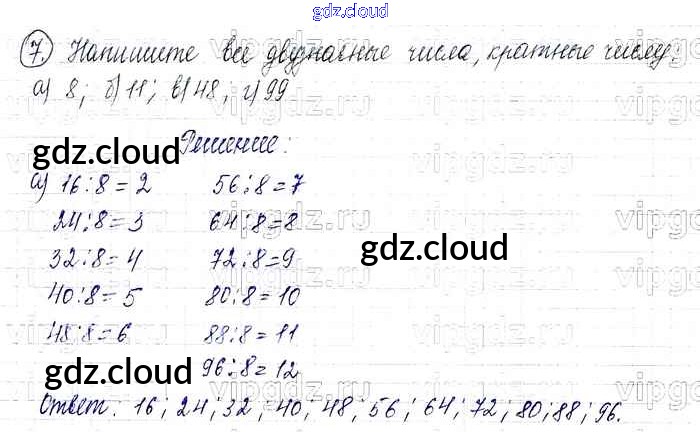 gdz.cloud
7. Напишите все двузначные числа, кратные числу:
а) 8; б) 11; в) 48, г) 99
Решение:
gdz.cloud
а) 16:8=2 56:8=7
24:8=3 64:8=8
gdz.cloud
32:8=4 72:8=9
40:8=5 80:8=10
48:8=6 88:8=11
gdz.cloud
96:8=12
Ответ: 16; 24; 32; 40; 48; 56; 64; 72; 80; 88; 96.